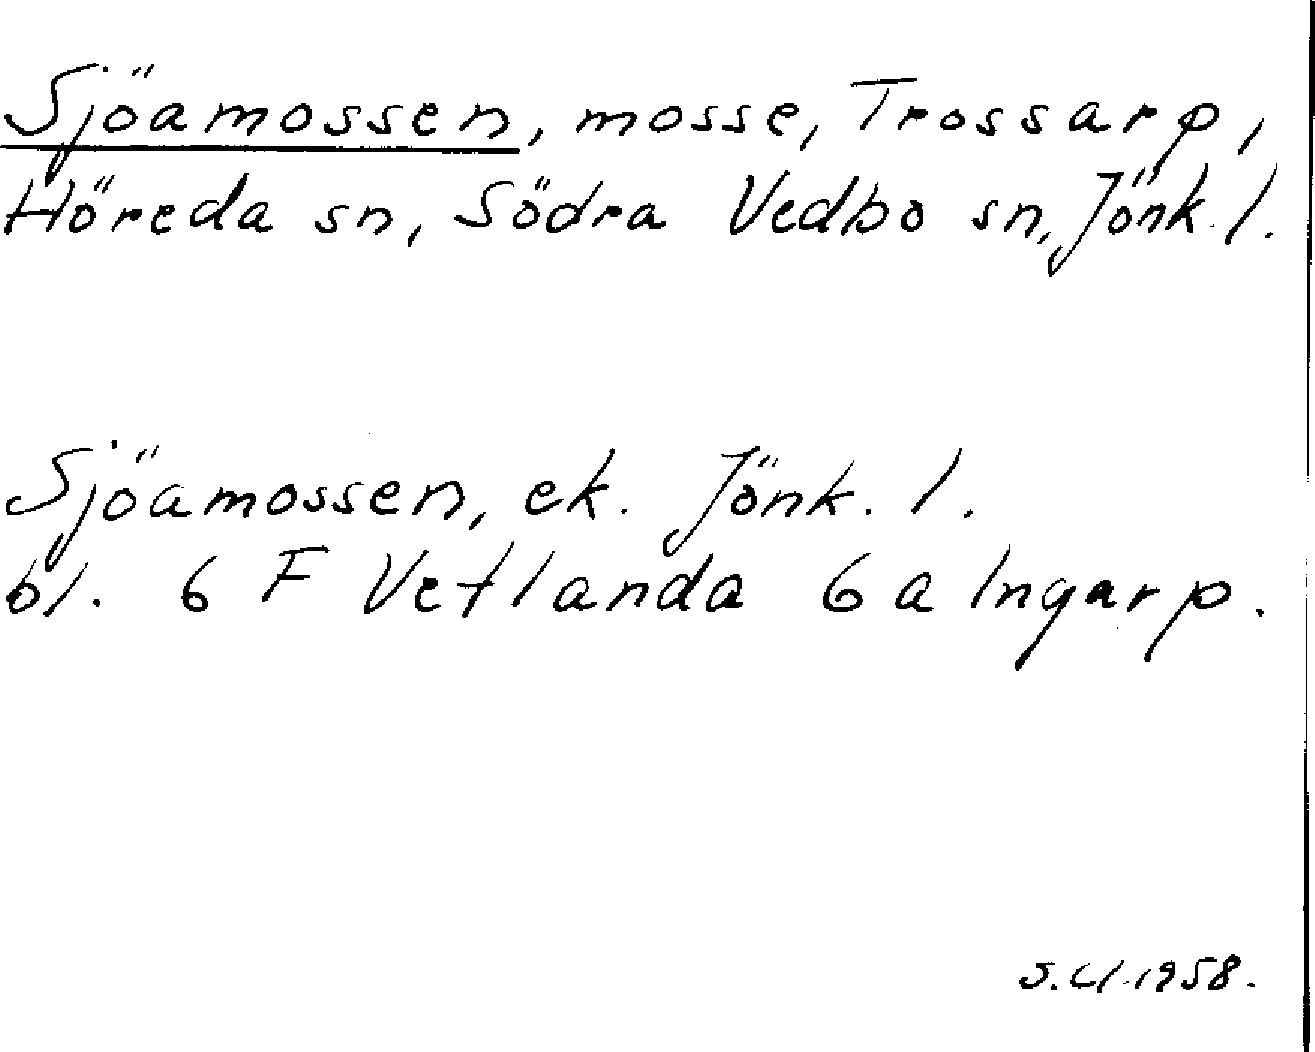 Sjöamossen, mosse, Trossarp,
Höreda sn, Södra Vedbo sn, Jönk. l.
Sjöamossen, ek. Jönk. l.
bl. 6 F Vetlanda 6 a Ingarp.
1958.